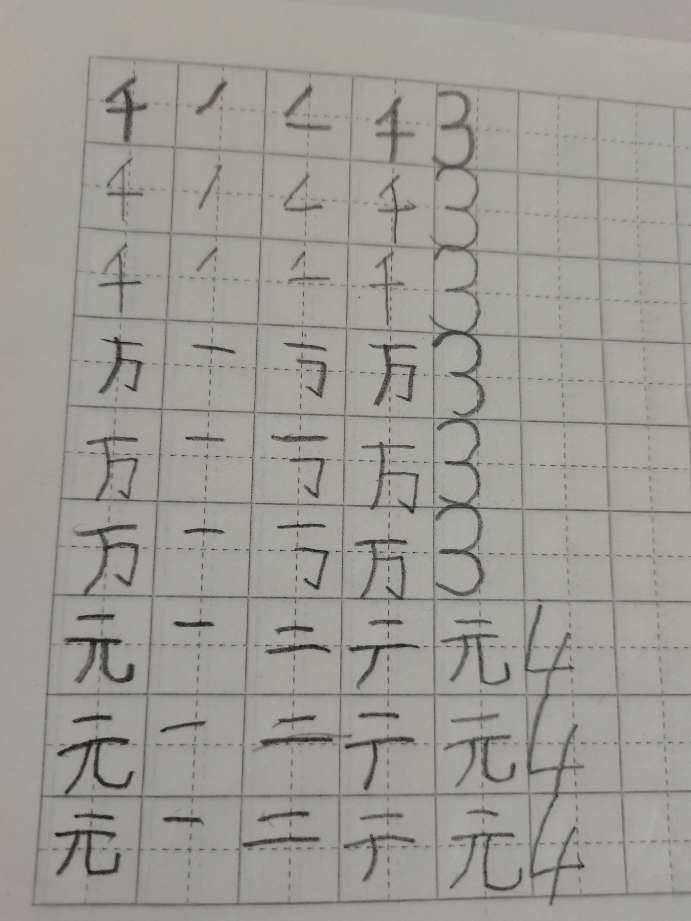 千 ノ 𠂉 千 3
千 ノ 𠂉 千 3
千 ノ 𠂉 千 3
万 一 丂 万 3
万 一 丂 万 3
万 一 丂 万 3
元 一 二 テ 元 4
元 一 二 テ 元 4
元 一 二 テ 元 4